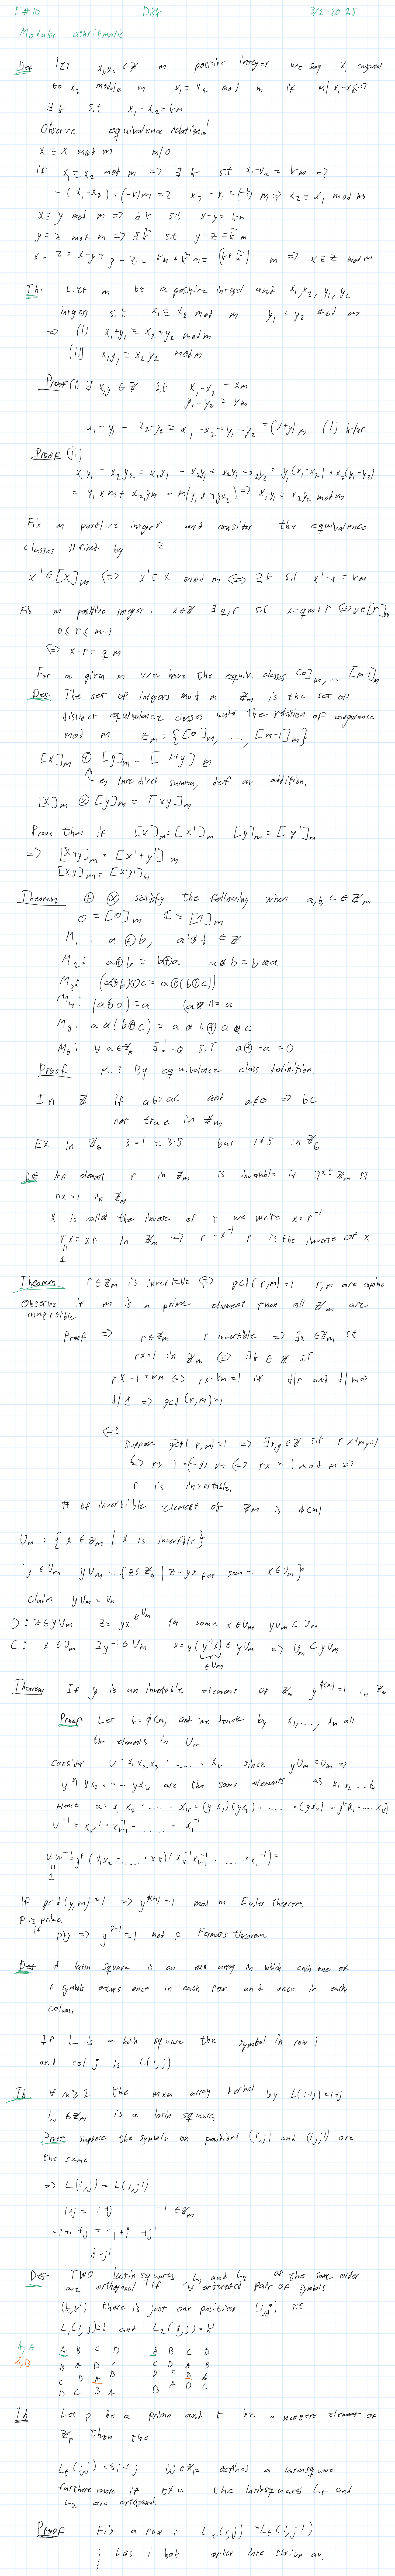 F#10 Disk 3/2-2025
Modular athritmatic
Def let x1,x2 ∈ Z m positive integer. we say x1 congruent
to x2 modulo m x1 ≡ x2 mod m if m|x1-x2 <=>
∃k s.t x1-x2=km
Observe equivalence relation!
x ≡ x mod m m|0
if x1 ≡ x2 mod m => ∃k s.t x1-x2 = km =>
-(x1-x2)=(-k)m => x2-x1=(-k)m => x2 ≡ x1 mod m
x ≡ y mod m => ∃k s.t x-y=km
y ≡ z mod m => ∃k̃ s.t y-z=k̃m
x-z=x-y+y-z=km+k̃m=(k+k̃)m => x≡z mod m
Th. Let m be a positive integer and x1,x2,y1,y2
integers s.t x1 ≡ x2 mod m y1 ≡ y2 mod m
=> (i) x1+y1 ≡ x2+y2 mod m
(ii) x1y1 ≡ x2y2 mod m
Proof (i) ∃x,y ∈ Z s.t x1-x2 = xm
y1-y2 = ym
x1-y1-x2-y2 = x1-x2+y1-y2 =(x+y)m (i) klar
Proof (ii)
x1y1-x2y2=x1y1-x2y1+x2y1-x2y2=y1(x1-x2)+x2(y1-y2)
=y1xm+x2ym=m(y1x+yx2) => x1y1 ≡ x2y2 mod m
Fix m positive integer and consider the equivalence
classes difined by ≡
x'∈[x]m <=> x' ≡ x mod m <=> ∃k s.t x'-x=km
Fix m positive integer. x∈Z ∃q,r s.t x=qm+r <=> x∈[r]m
0≤r≤m-1
<=> x-r=qm
For a given m we have the equiv. classes [0]m,....[m-1]m
Def The set of integers mod m Zm is the set of
distinct equivalence classes under the relation of congruence
mod m Zm={[0]m, ..., [m-1]m}
[x]m ⊕ [y]m = [x+y]m
ej lnre direkt summa, def av addition.
[x]m ⊗ [y]m = [xy]m
Prove that if [x]m=[x']m [y]m=[y']m
=> [x+y]m=[x'+y']m
[xy]m=[x'y']m
Theorem ⊕ ⊗ satisfy the following when a,b,c ∈ Zm
0=[0]m 1=[1]m
M1: a⊕b, a⊗b ∈ Z
M2: a⊕b=b⊕a a⊗b=b⊗a
M3: (a⊕b)⊕c=a⊕(b⊕c)
M4: (a⊕0)=a (a⊗1)=a
a⊗(b⊕c)=a⊗b⊕a⊗c
∀a∈Zm ∃!-a s.t a⊕-a=0
Proof M1: By equivalence class definition.
In Z if ab=ac and a≠0 => bc
not true in Zm
Ex in Z6 3·1=3·5 but 1≠5 in Z6
Def An element r in Zm is invertable if ∃x∈Zm st
rx=1 in Zm
x is called the inverse of r we write x=r^-1
rx=xr in Zm => r=x^-1 r is the inverse of x
1
Theorem r∈Zm is invertable <=> gcd(r,m)=1 r,m are coprime
Observe if m is a prime element than all Zm are
invertible
Proof => r∈Zm r invertible => ∃x∈Zm st
rx=1 in Zm <=> ∃k∈Z s.t
rx-1=km <=> rx-km=1 if d|r and d|m =>
d|1 => gcd(r,m)=1
<=:
suppose gcd(r,m)=1 => ∃x,y∈Z s.t rx+my=1
<=> rx-1=(-y)m <=> rx ≡ 1 mod m =>
r is invertable.
# of invertible element of Zm is φ(m)
Um={x∈Zm | x is invertible}
y∈Um yUm={z∈Zm | z=yx for some x∈Um}
claim yUm=Um
⊃: z∈yUm z=yx ∈Um for some x∈Um yUm⊂Um
⊂: x∈Um ∃y^-1∈Um x=y(y^-1x)∈yUm => Um⊂yUm
∈Um
Theorem If y is an invertable element of Zm y^φ(m)=1 in Zm
Proof Let k=φ(m) and we denote by x1,...,xk all
the elements in Um
Consider u=x1x2x3·....·xk since yUm=Um =>
yx1 yx2·.....yxk are the same elements as x1 x2...xk
Hence u=x1x2·...·xk=(yx1)(yx2)·....·(yxk)=y^k(x1·...xk)
u^-1=xk^-1·xk-1^-1·....·x1^-1
uu^-1=y^k(x1x2·....·xk)(xk^-1xk-1^-1·....·x1^-1)=
1
If gcd(y,m)=1 => y^φ(m)≡1 mod m Euler theorem.
p is prime,
if p∤y => y^p-1≡1 mod p Fermats theorem.
Def A latin square is an nxn array in which each one of
n symbols occurs once in each row and once in each
colum.
If L is a latin square the symbol in row i
and col j is L(i,j)
Th ∀m≥2 the mxm array defined by L(i+j)=i+j
i,j∈Zm is a latin square,
Proof suppose the symbols on positions (i,j) and (i,j') are
the same
=> L(i,j)=L(i,j')
i+j=i+j' -i∈Zm
-i+i+j=-i+i+j'
j=j'
Def Two latinsquares L1 and L2 of the same order
are orthogonal if ∀ ordered pair of symbols
(k,k') there is just one position (i,j) st
L1(i,j)=k and L2(i,j)=k'
A,A A B C D A B C D
A,B B A D C C D A B
C D A B D C B A
D C B A B A D C
Th Let p be a prime and t be a nonzero element of
Zp then the
Lt(i,j)=ti+j i,j∈Zp defines a latinsquare
furthermore if t≠u the latinsquares Lt and
Lu are ortogonal.
Proof Fix a row i Lt(i,j)=Lt(i,j')
Läs i bok orkar inte skriva av.